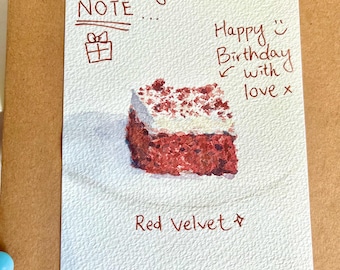 NOTE ...
Happy
Birthday
with
love x
Red Velvet